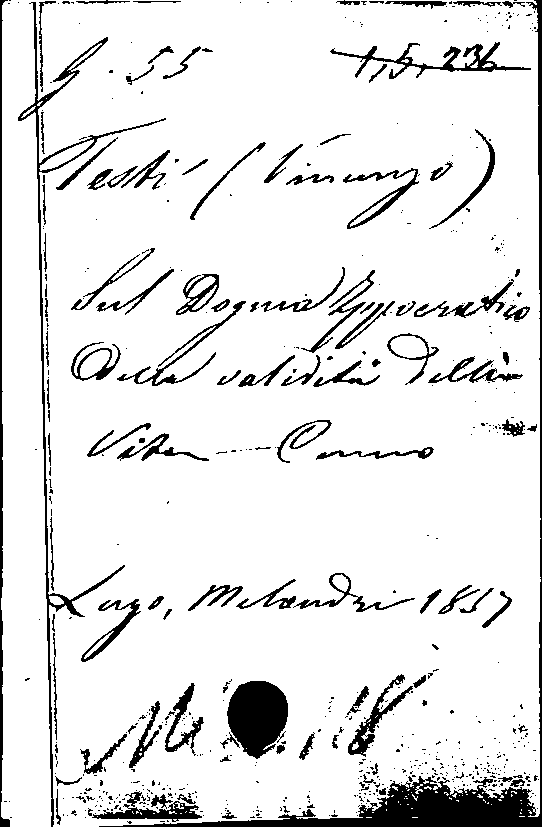 G. 55 1,5,236
Testi (Vincenzo)
Sul Dogma Ippocratico
Della validità della
Vita — Cenno
Lugo, Melandri 1857
118